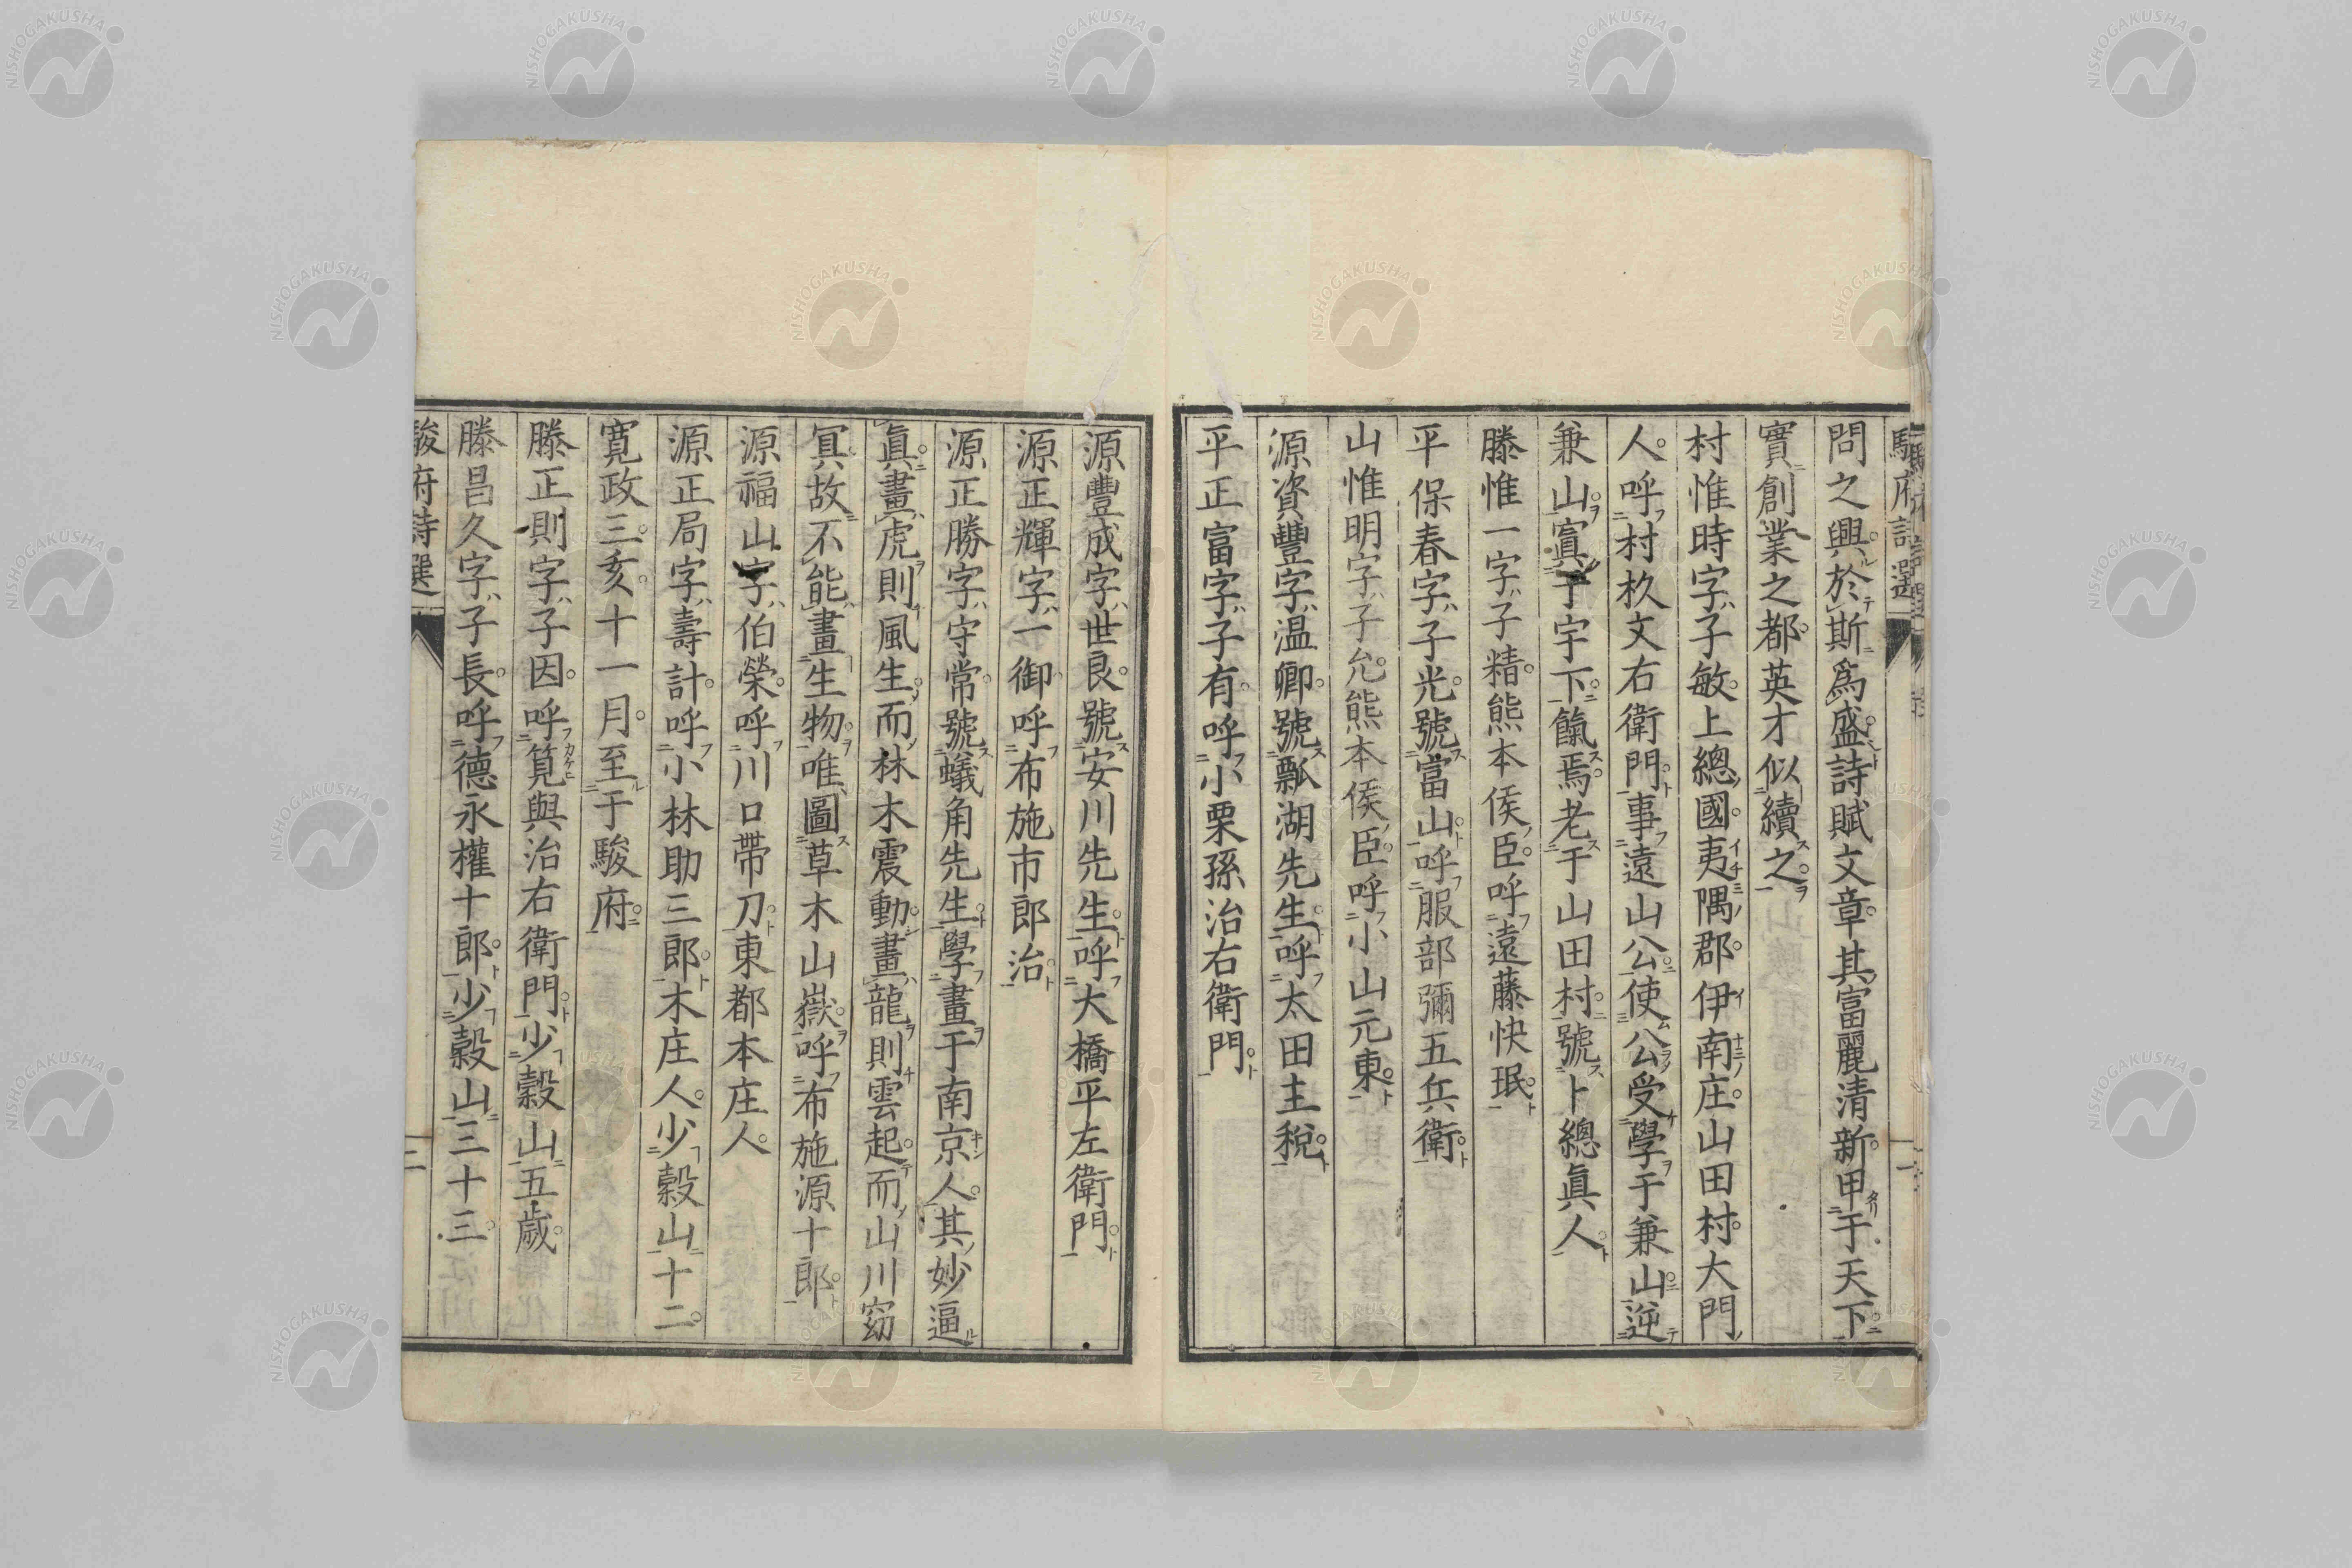 駿府詩選
問之興於斯爲盛詩賦文章其富麗清新甲于天下
實創業之都英才似續之
村惟時字子敏上總國夷隅郡伊南庄山田村大門
人呼村杦文右衛門事遠山公使公受學于兼山逆
兼山寘于宇下餼焉老于山田村號卜總眞人
滕惟一字子精熊本侯臣呼遠藤快珉
平保春字子光號富山呼服部彌五兵衛
山惟明字子允熊本侯臣呼小山元東
源資豐字温卿號瓢湖先生呼太田主稅
平正富字子有呼小栗孫治右衛門
源豐成字世良號安川先生呼大橋平左衛門
源正輝字一御呼布施市郎治
源正勝字守常號蟻角先生學畫于南京人其妙逼
眞畫虎則風生而林木震動畫龍則雲起而山川窈
冥故不能畫生物唯圖草木山嶽呼布施源十郎
源福山字伯榮呼川口帶刀東都本庄人
源正局字壽計呼小林助三郎木庄人少穀山十二
寛政三亥十一月至于駿府
滕正則字子因呼筧與治右衛門少穀山五歳
滕昌久字子長呼德永權十郎少穀山三十三
駿府詩選
二